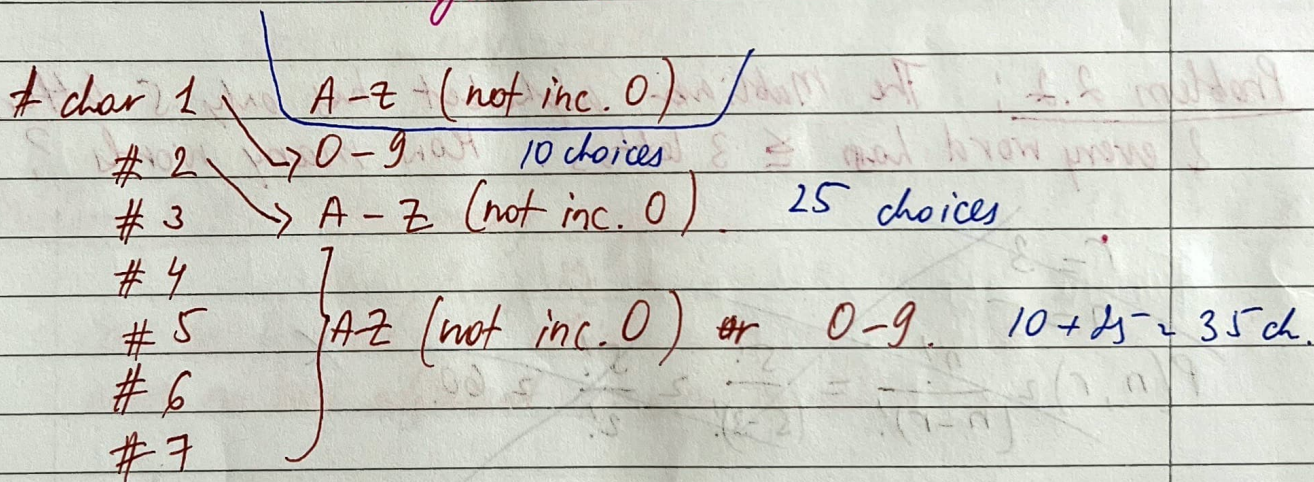 # char 1 A-Z (not inc. O)
# 2 → 0-9 10 choices
# 3 → A-Z (not inc. O). 25 choices
# 4
# 5 A-Z (not inc. O) or 0-9. 10+25=35 ch.
# 6
# 7